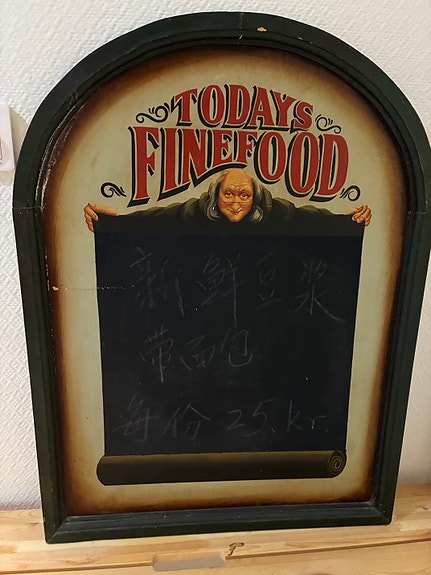 TODAYS
FINEFOOD
新鲜豆浆
带面包
每份 25.kr.